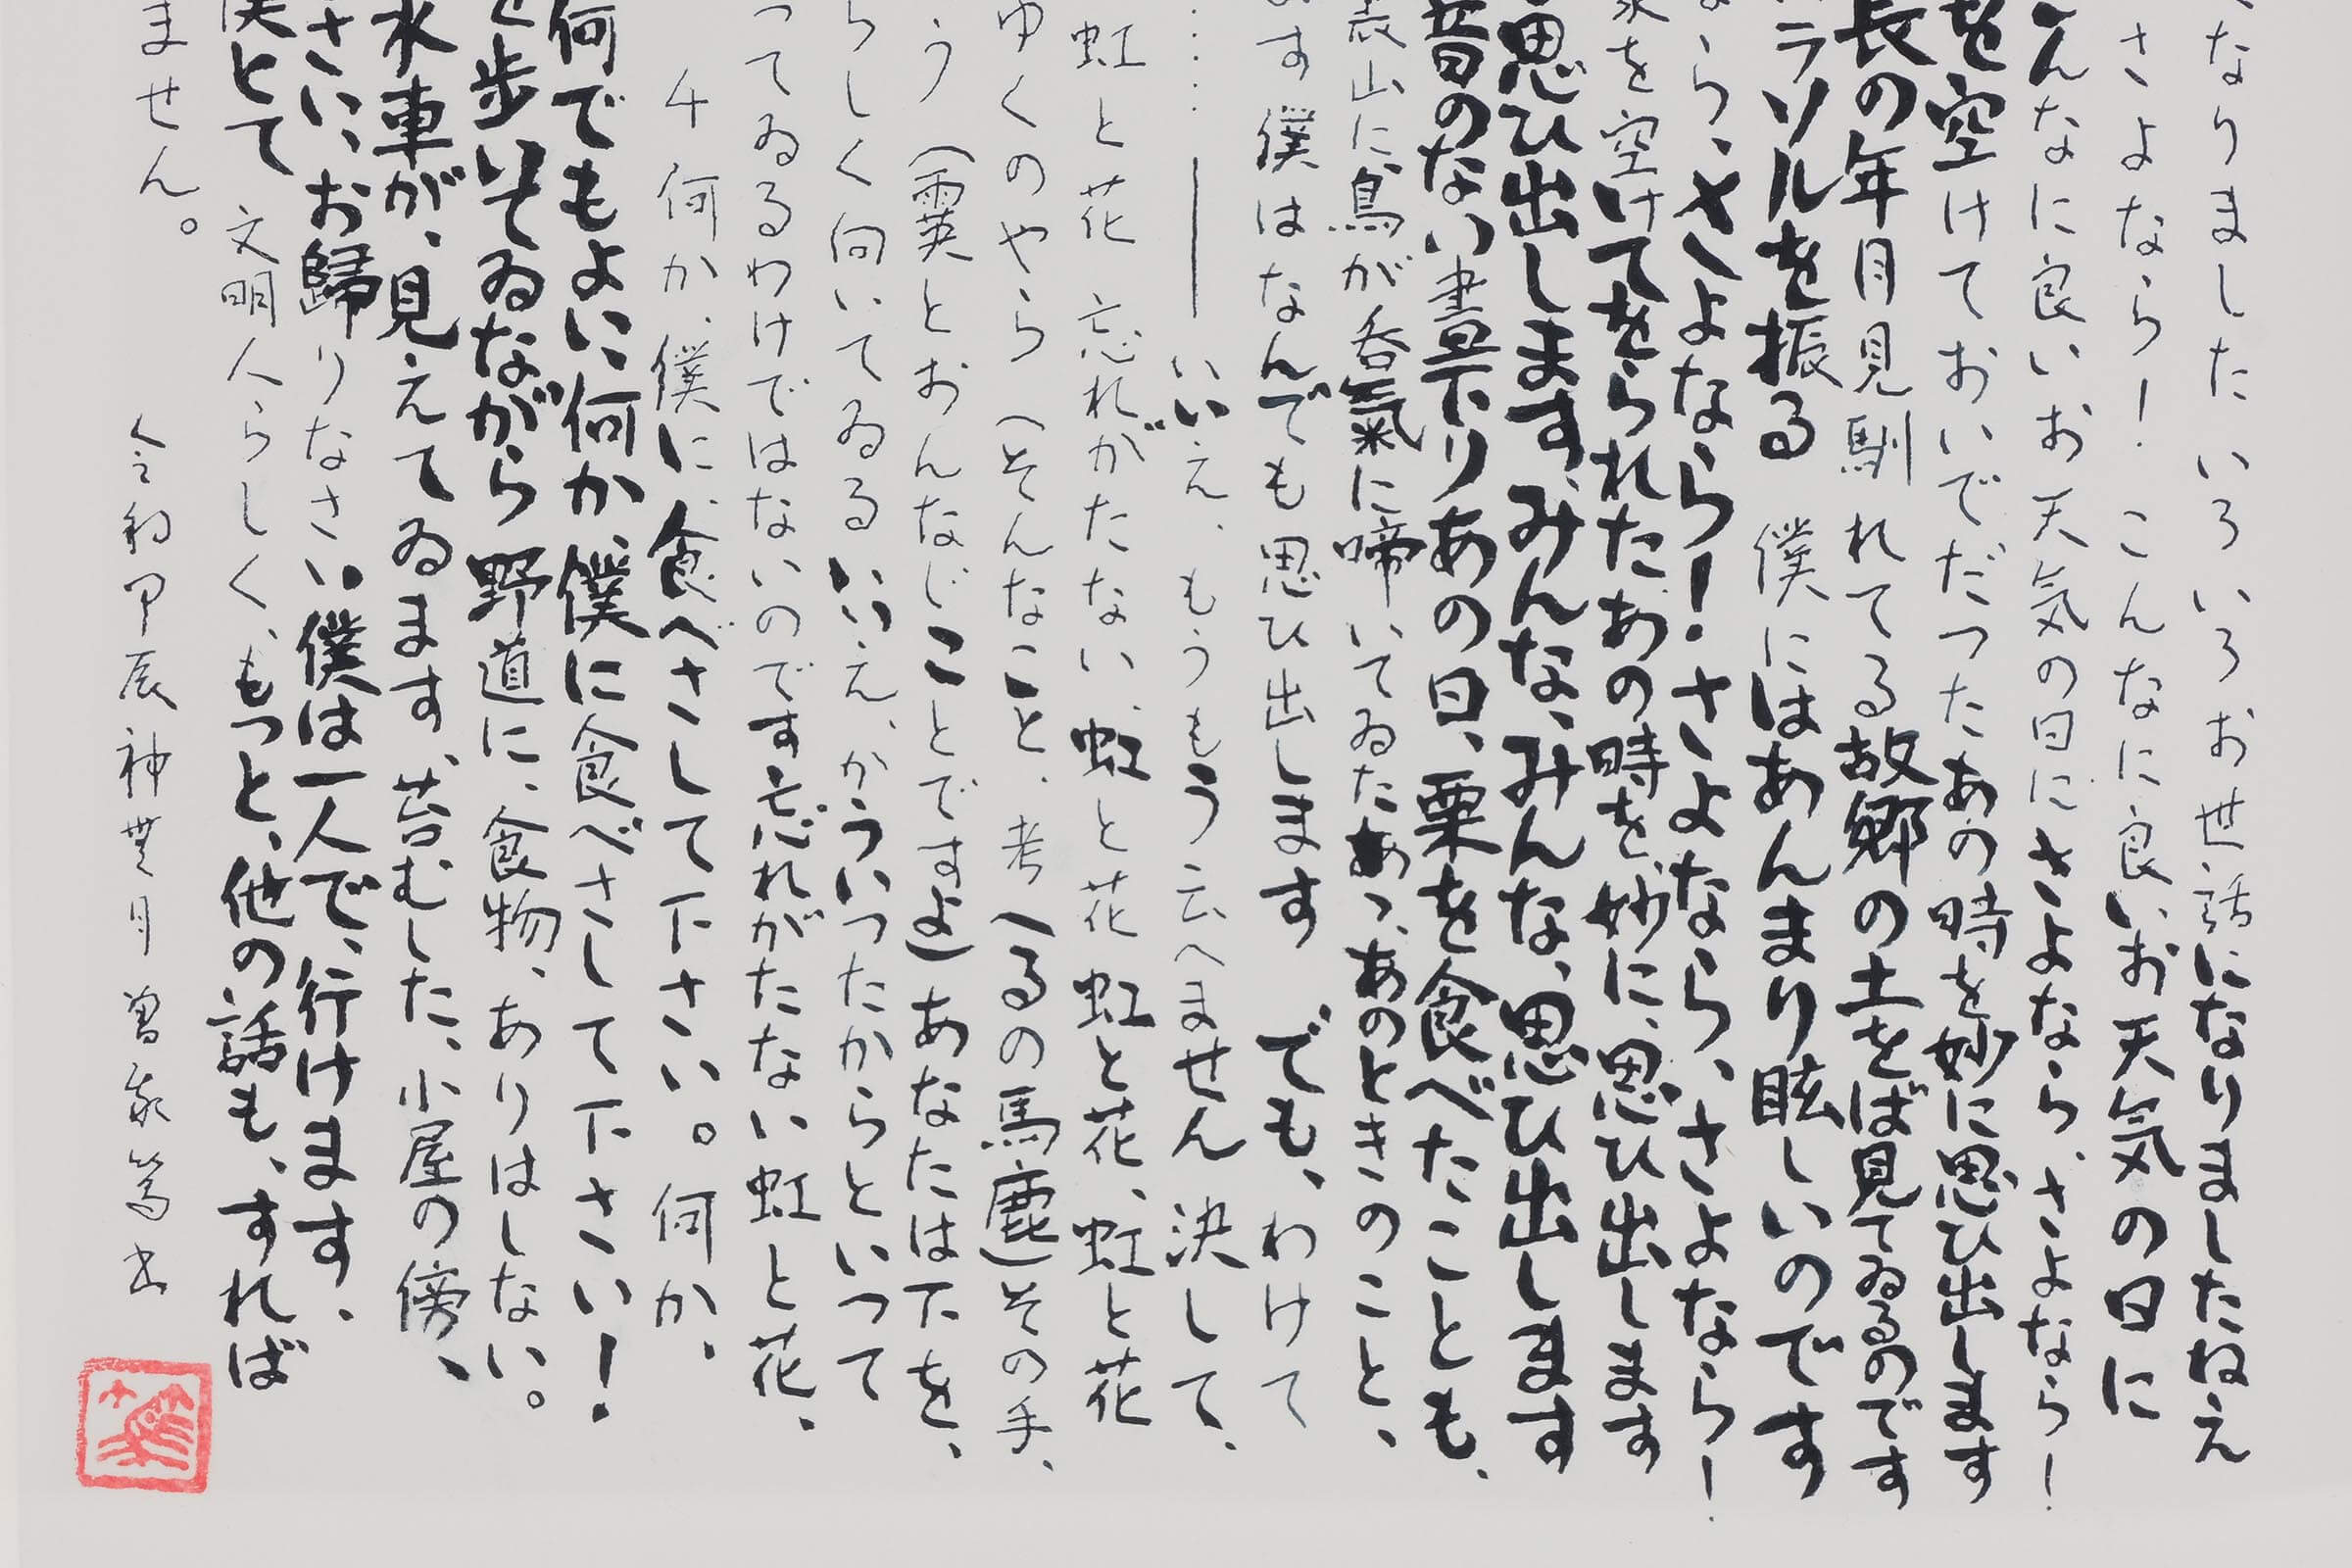 なりました いろいろお世話になりましたねえ
さよなら！ こんなに良いお天気の日に
んなに良いお天気の日に さよなら、さよなら！
を空けておいでだつたあの時を妙に思ひ出します
長の年月見馴れてる故郷の土をば見てゐるのです
ラソルを振る 僕にはあんまり眩しいのです
なら、さよなら！ さよなら、さよなら！
を空けてをられたあの時を、妙に、思ひ出します
思ひ出します、みんな、みんな、思ひ出します
昔のない晝下りあの日、栗を食べたことも、
裏山に鳥が呑氣に啼いてゐたあゝ、あのときのこと、
ます 僕はなんでも思ひ出します でも、わけて
……――いいえ、もうもう云へません 決して、
虹と花 忘れがたない、虹と花 虹と花、虹と花
ゆくのやら （そんなこと、考へるの馬鹿）その手、
う （霙とおんなじことですよ） あなたは下を、
らしく向いてゐる いいえ、かういつたからといつて
つてゐるわけではないのです 忘れがたない虹と花、
4 何か、僕に、食べさして下さい。何か、
何でもよい 何か、僕に食べさして下さい！
を歩いてゐながら 野道に、食物、ありはしない。
水車が、見えてゐます、苔むした、小屋の傍、
さい、お歸りなさい 僕は一人で、行けます、
僕とて 文明人らしく、もつと、他の話も、すれば
ません。
令和甲辰神無月 曽家篤書